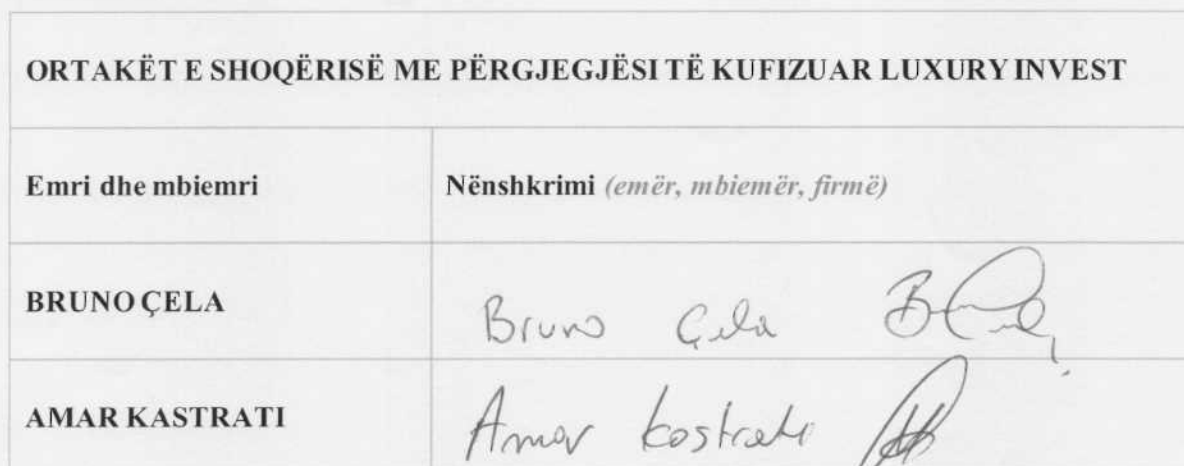 ORTAKËT E SHOQËRISË ME PËRGJEGJËSI TË KUFIZUAR LUXURY INVEST
Emri dhe mbiemri Nënshkrimi (emër, mbiemër, firmë)
BRUNO ÇELA Bruno Çela
AMAR KASTRATI Amar Kastrati